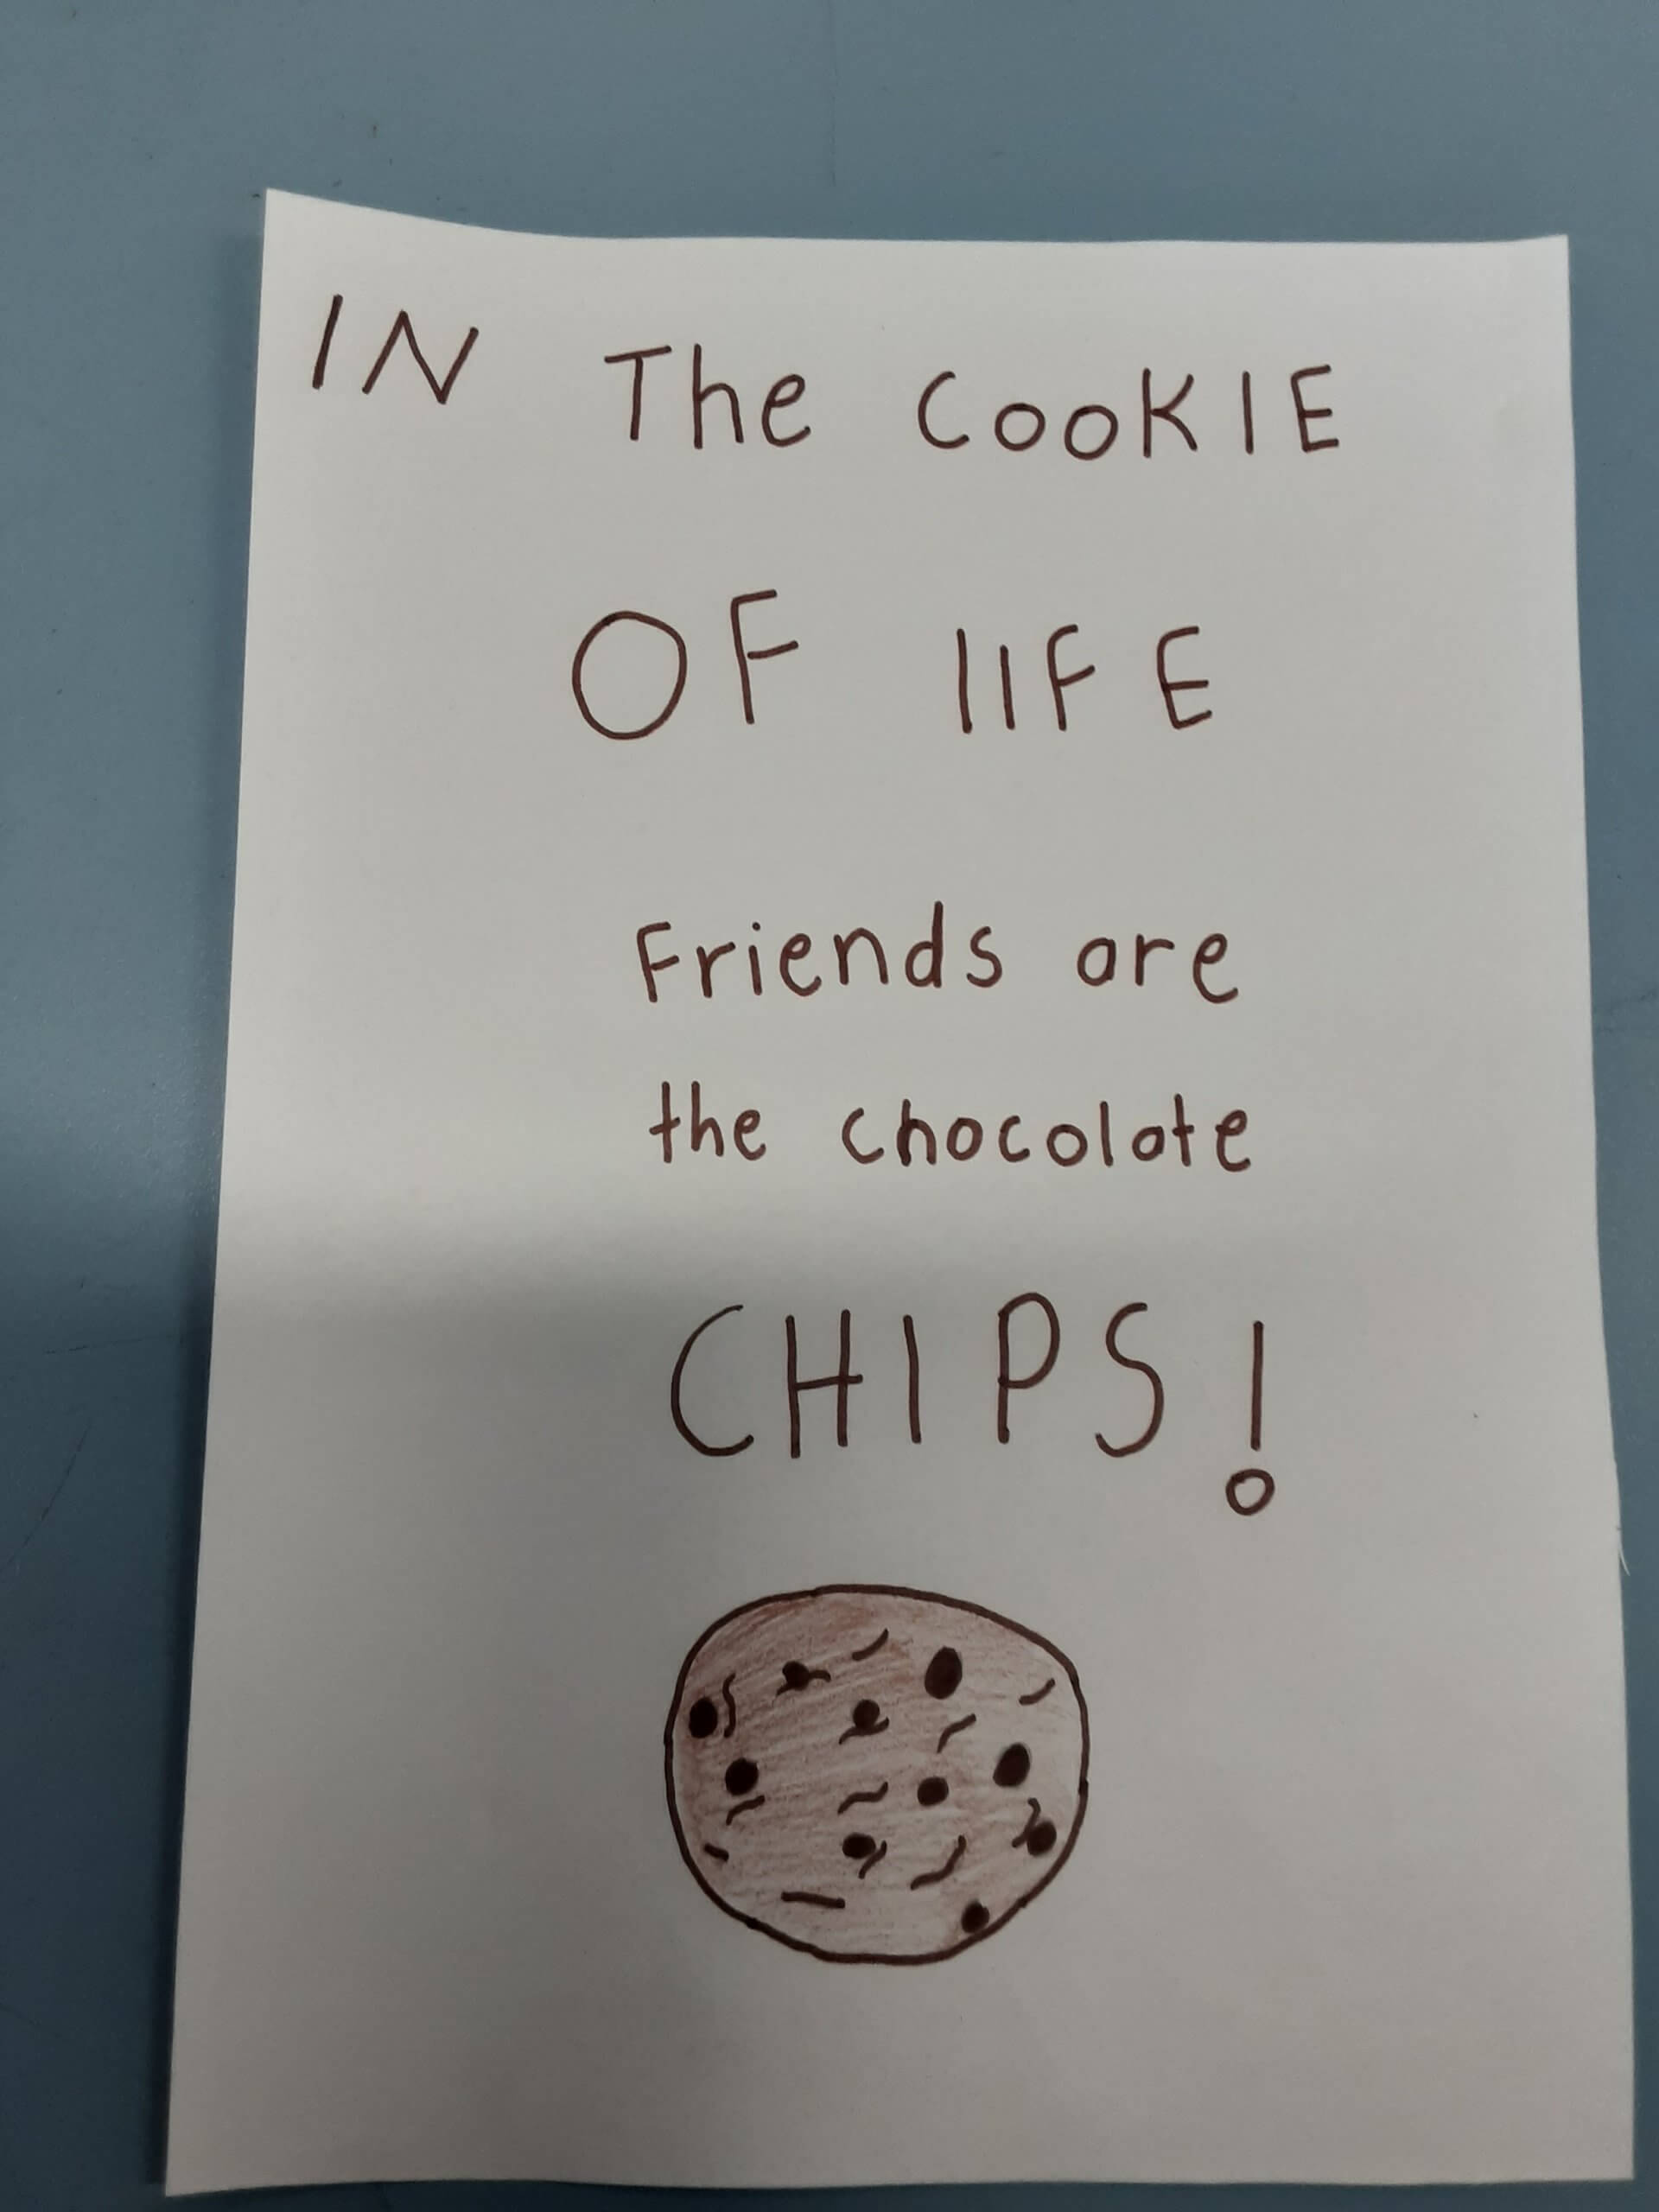 IN The COOKIE
OF lIFE
Friends are
the chocolate
CHIPS!